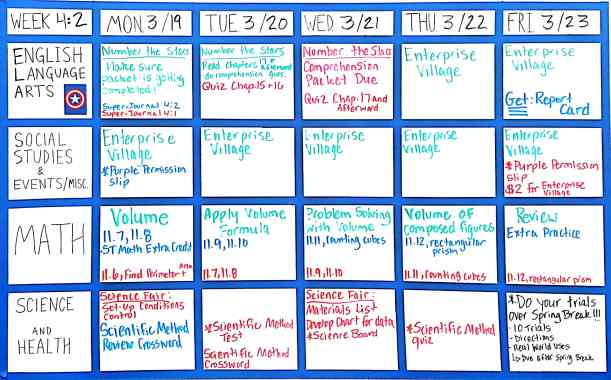 WEEK 4:2
MON 3/19
TUE 3/20
WED 3/21
THU 3/22
FRI 3/23
ENGLISH
LANGUAGE
ARTS
Number the Stars
Make sure
packet is going
completed!
Super-Journal 4:2
Super-Journal 4:1
Number the Stars
Read chapters 17 +
afterword
do comprehension ques.
Quiz Chap. 15 + 16
Number the Stars
Comprehension
Packet Due
Quiz Chap. 17 and
Afterword
Enterprise
Village
Enterprise
Village
Get: Report
Card
SOCIAL
STUDIES
&
EVENTS/MISC.
Enterprise
Village
*Purple Permission
slip
Enterprise
Village
Enterprise
Village
Enterprise
Village
Enterprise
Village
*Purple Permission
slip
$2 for Enterprise
Village
MATH
Volume
11.7, 11.8
ST Math Extra Credit
11.6, Find Perimeter +
Area
Apply Volume
Formula
11.9, 11.10
11.7, 11.8
Problem Solving
with Volume
11.11, counting cubes
11.9, 11.10
Volume of
composed figures
11.12, rectangular
prism
11.11, counting cubes
Review
Extra Practice
11.12, rectangular prism
SCIENCE
AND
HEALTH
Science Fair:
Set-Up Conditions
Control
Scientific Method
Review Crossword
*Scientific Method
Test
Scientific Method
Crossword
Science Fair:
Materials List
Develop Chart for data
*Science Board
*Scientific Method
quiz
*Do your trials
over Spring Break!!!
- 10 Trials
- Directions
- Real World Uses
Due after Spring Break